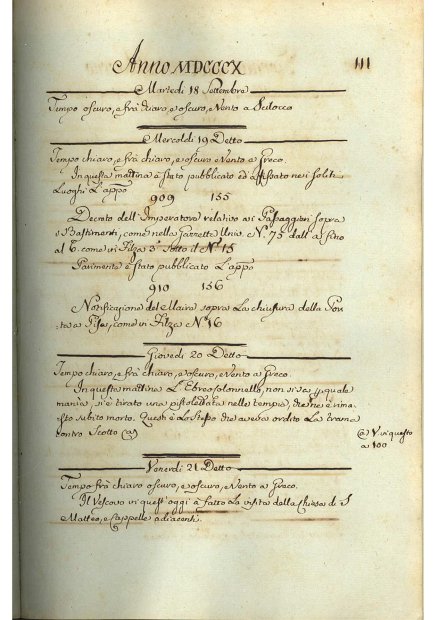 Anno MDCCCX
III
Martedi 18 Settembre
Tempo oscuro, e frà chiaro, e oscuro, Vento a Scilocco
Mercoldi 19 Detto
Tempo chiaro, e frà chiaro, e oscuro Vento a Greco
In questa mattina è stato pubblicato ed affissato nei soliti
Luoghi L'appo
909 155
Decreto dell'Imperatore relativo ai Passaggieri sopra
i Bastimenti, come nella Gazzetta Univ. N.º 75 dall'
al come in Filza 5ª Sotto il Nº 15
Parimente è stato pubblicato L'appo
910 156
Notificazione del Maire sopra La chiusura della Por-
ta a Pisa, come in Filza Nº 16
Giovedi 20 Detto
Tempo chiaro, e frà chiaro, e oscuro, e Vento a Greco.
In questa mattina L'Ebreo non si sà p quale
mania, si è tirato una pistolettata nelle tempia, che ne è rima-
sto subito morto. Questi è Lo stesso che aveva ordito La trama
contro Scotto (a)
(a) V. vi questo
a 100
Venerdi 21 Detto
Tempo frà chiaro oscuro, e oscuro, Vento a Greco.
Il Vescovo vi quest'oggi à fatto La visita della Chiesa di S
Matteo, e Cappelle adiacenti.